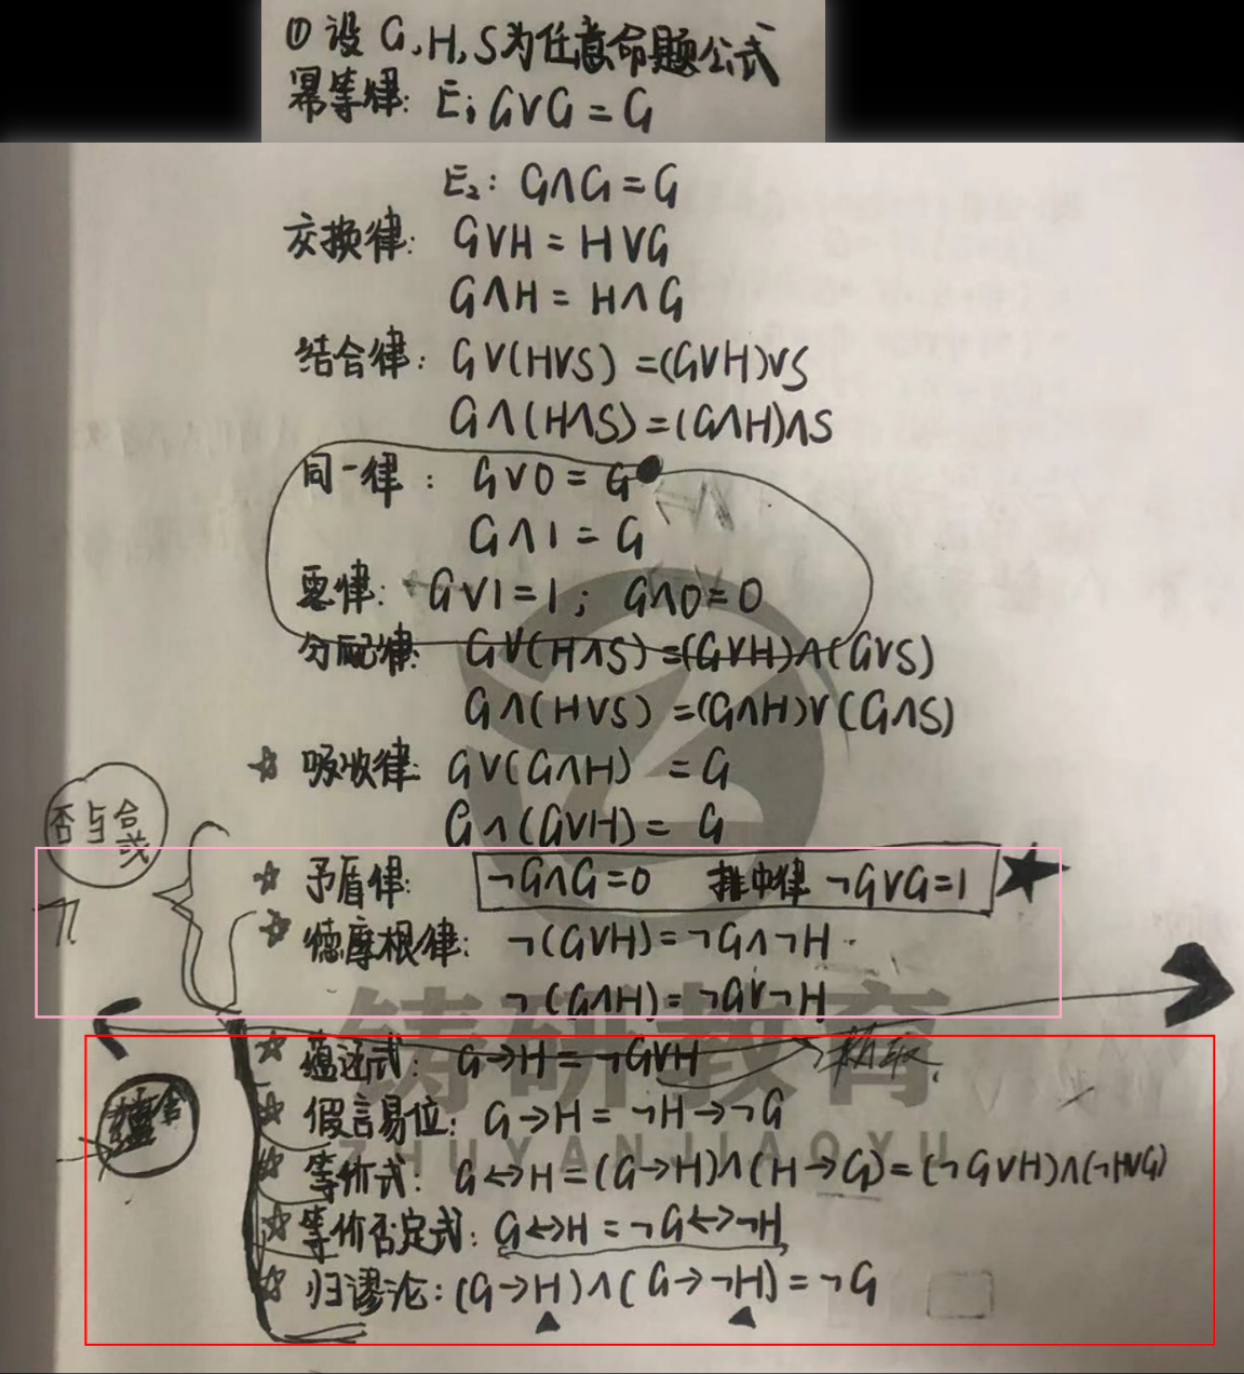 ① 设 G,H,S为任意命题公式
幂等律: E₁ G∨G = G
E₂: G∧G = G
交换律: G∨H = H∨G
G∧H = H∧G
结合律: G∨(H∨S) =(G∨H)∨S
G∧(H∧S)=(G∧H)∧S
同一律: G∨0 = G
G∧1 = G
零律: G∨1=1; G∧0=0
分配律: G∨(H∧S)=(G∨H)∧(G∨S)
G∧(H∨S)=(G∧H)∨(G∧S)
☆ 吸收律: G∨(G∧H) = G
否与合或
G∧(G∨H) = G
☆ 矛盾律: ¬G∧G=0 排中律 ¬G∨G=1 ★
☆ 德摩根律: ¬(G∨H)=¬G∧¬H
¬(G∧H)=¬G∨¬H
☆ 蕴涵式: G→H = ¬G∨H
☆ 假言易位: G→H = ¬H→¬G
☆ 等价式: G↔H=(G→H)∧(H→G)=(¬G∨H)∧(¬H∨G)
☆ 等价否定式: G↔H = ¬G↔¬H
☆ 归谬论: (G→H)∧(G→¬H)=¬G
铸研教育
ZHUYANJIAOYU